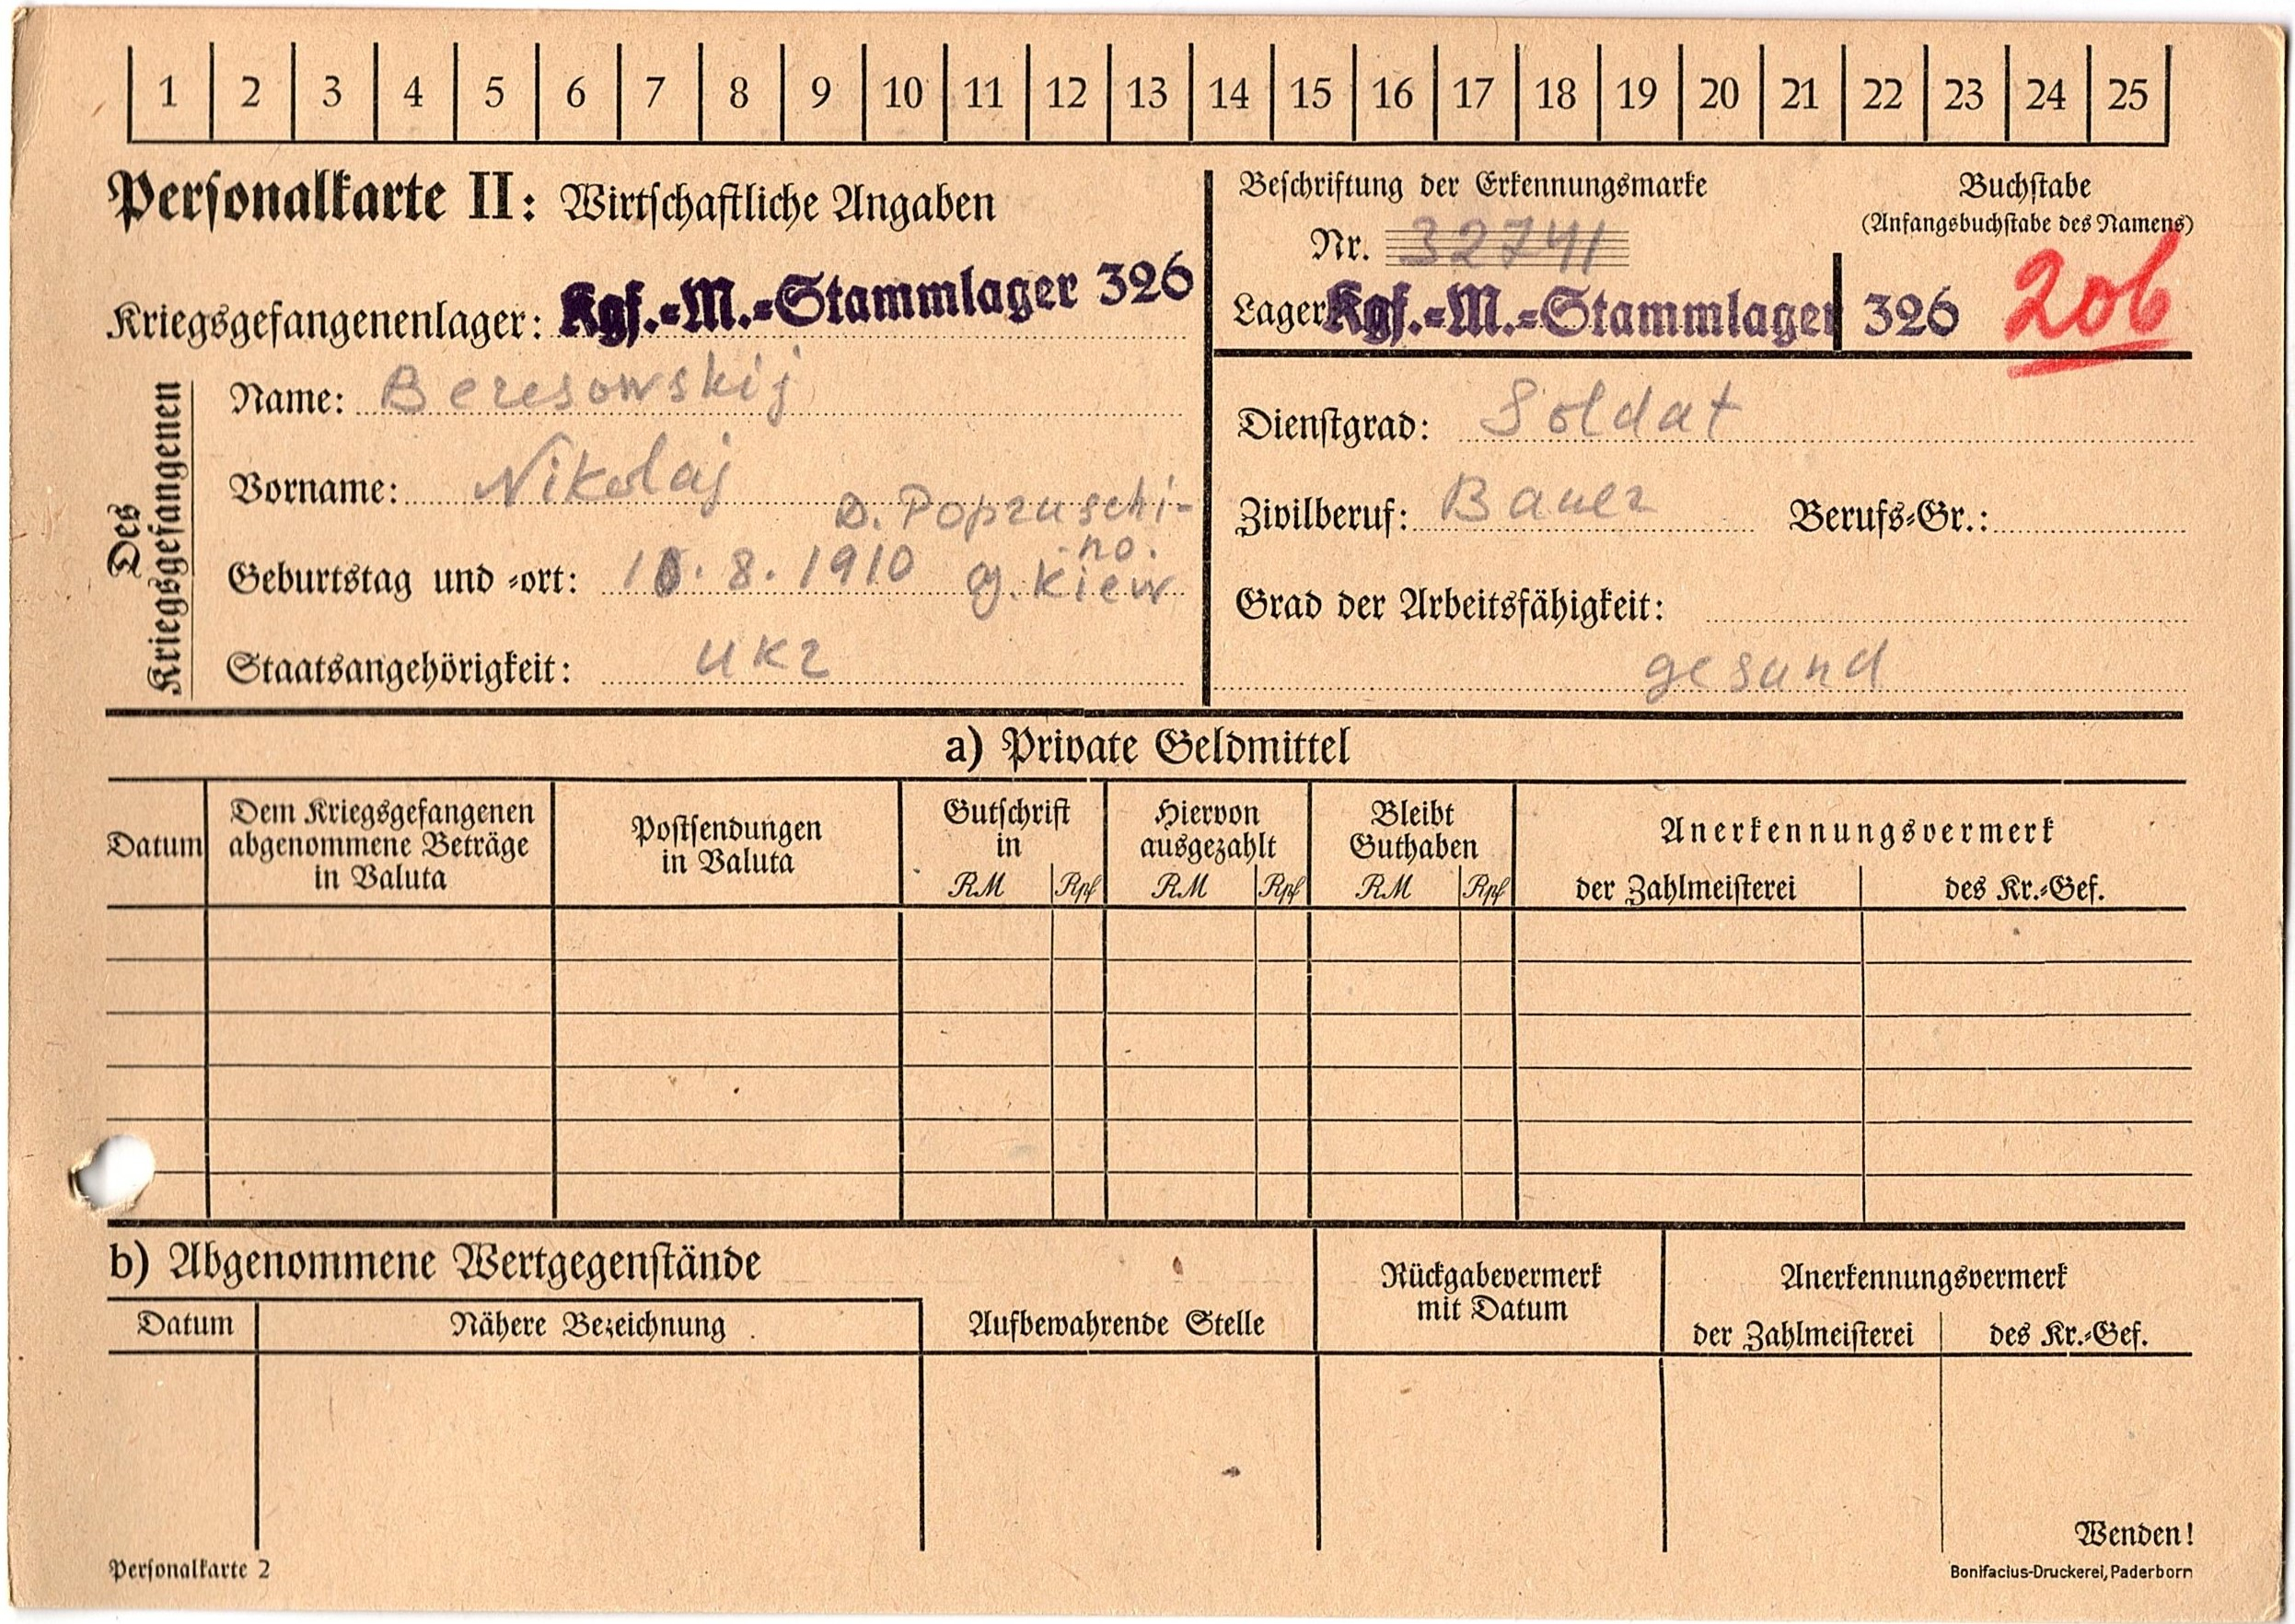 1 2 3 4 5 6 7 8 9 10 11 12 13 14 15 16 17 18 19 20 21 22 23 24 25
Personalkarte II: Wirtschaftliche Angaben
Kriegsgefangenenlager: Kgf.-M.-Stammlager 326
Beschriftung der Erkennungsmarke
Nr. 32741
Lager Kgf.-M.-Stammlager 326
Buchstabe
(Anfangsbuchstabe des Namens)
206
Des Kriegsgefangenen
Name: Beresowskij
Vorname: Nikolaj
D. Popruschi-
no.
Geburtstag und -ort: 10.8.1910 g. Kiew
Staatsangehörigkeit: Ukr
Dienstgrad: Soldat
Zivilberuf: Bauer Berufs-Gr.:
Grad der Arbeitsfähigkeit:
gesund
a) Private Geldmittel
Datum
Dem Kriegsgefangenen
abgenommene Beträge
in Valuta
Postsendungen
in Valuta
Gutschrift
in
RM Rpf
Hiervon
ausgezahlt
RM Rpf
Bleibt
Guthaben
RM Rpf
Anerkennungsvermerk
der Zahlmeisterei des Kr.-Gef.
b) Abgenommene Wertgegenstände
Datum Nähere Bezeichnung
Aufbewahrende Stelle
Rückgabevermerk
mit Datum
Anerkennungsvermerk
der Zahlmeisterei des Kr.-Gef.
Wenden!
Personalkarte 2
Bonifacius-Druckerei, Paderborn